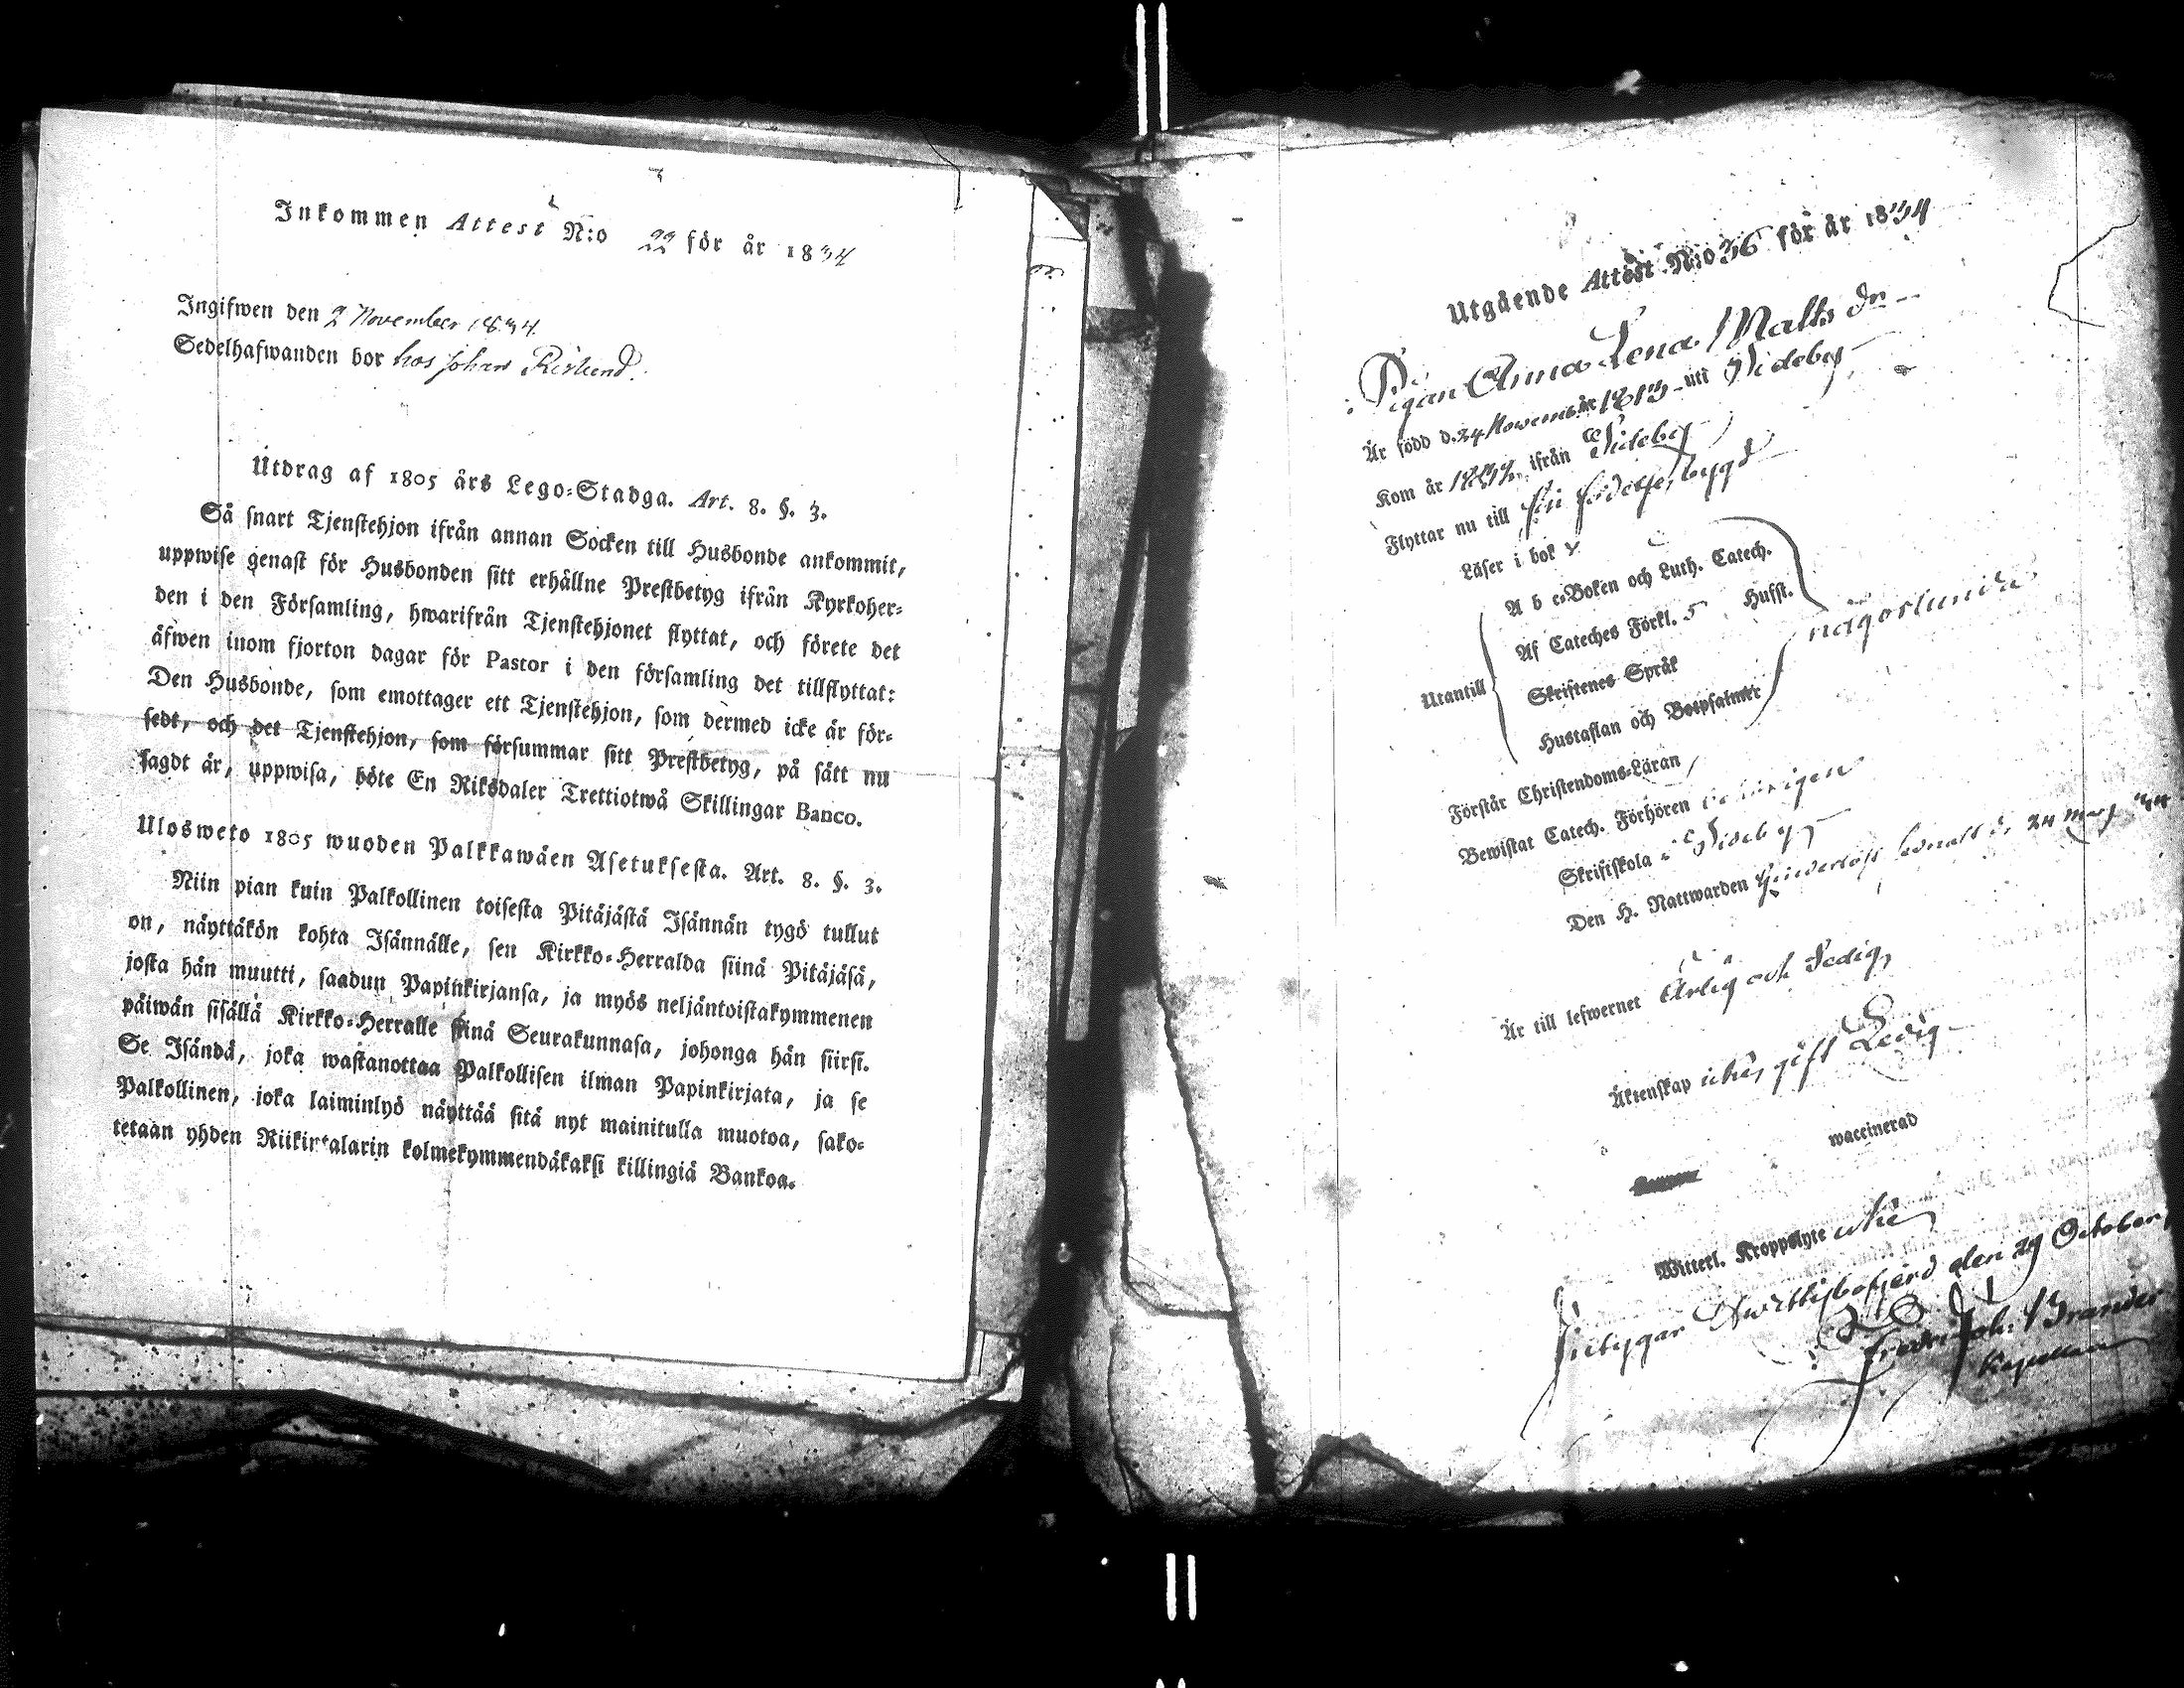 Inkommen Attest N:o 22 för år 1834
Ingifwen den 2 November 1834.
Sedelhafwanden bor hos Johan Rislund.
Utdrag af 1805 års Lego=Stadga. Art. 8. §. 3.
Så snart Tjenstehjon ifrån annan Socken till Husbonde ankommit,
uppwise genast för Husbonden sitt erhållne Prestbetyg ifrån Kyrkoher=
den i den Församling, hwarifrån Tjenstehjonet flyttat, och förete det
äfwen inom fjorton dagar för Pastor i den församling det tillflyttat:
Den Husbonde, som emottager ett Tjenstehjon, som dermed icke är för=
sedt, och det Tjenstehjon, som försummar sitt Prestbetyg, på sätt nu
sagdt är, uppwisa, böte En Riksdaler Trettiotwå Skillingar Banco.
Ulosweto 1805 wuoden Palkkawäen Asetuksesta. Art. 8. §. 3.
Niin pian kuin Palkollinen toisesta Pitäjästä Isännän tygö tullut
on, näyttäkön kohta Isännälle, sen Kirkko=Herralda siinä Pitäjäsä,
josta hän muutti, saadun Papinkirjansa, ja myös neljäntoistakymmenen
päiwän sisällä Kirkko=Herralle siinä Seurakunnasa, johonga hän siirsi.
Se Isändä, joka wastanottaa Palkollisen ilman Papinkirjata, ja se
Palkollinen, joka laiminlyö näyttää sitä nyt mainitulla muotoa, sako=
tetaan yhden Riikintalarin kolmekymmendäkaksi killingiä Bankoa.
Utgående Attest N:o 36 för år 1834
Pigan Anna Lena Matts dr
Är född d. 24 November år 1813 uti Sideby
Kom år ifrån Sideby
Flyttar nu till sin födelsebygd
Läser i bok
A b c=Boken och Luth. Catech.
Af Cateches Förkl. 5 Hufst.
Utantill
Skriftenes Språk
Hustaflan och Botpsalmer
någorlunda
Förstår Christendoms=Läran
Bewistat Catech. Förhören
Skriftskola i Sideby
Den H. Nattwarden d. 24
Är till lefwernet Ärlig och Sedig,
Äktenskap icke gift Ledig
waccinerad
Witterl. Kroppslyte icke
den 29 October
Kapellan